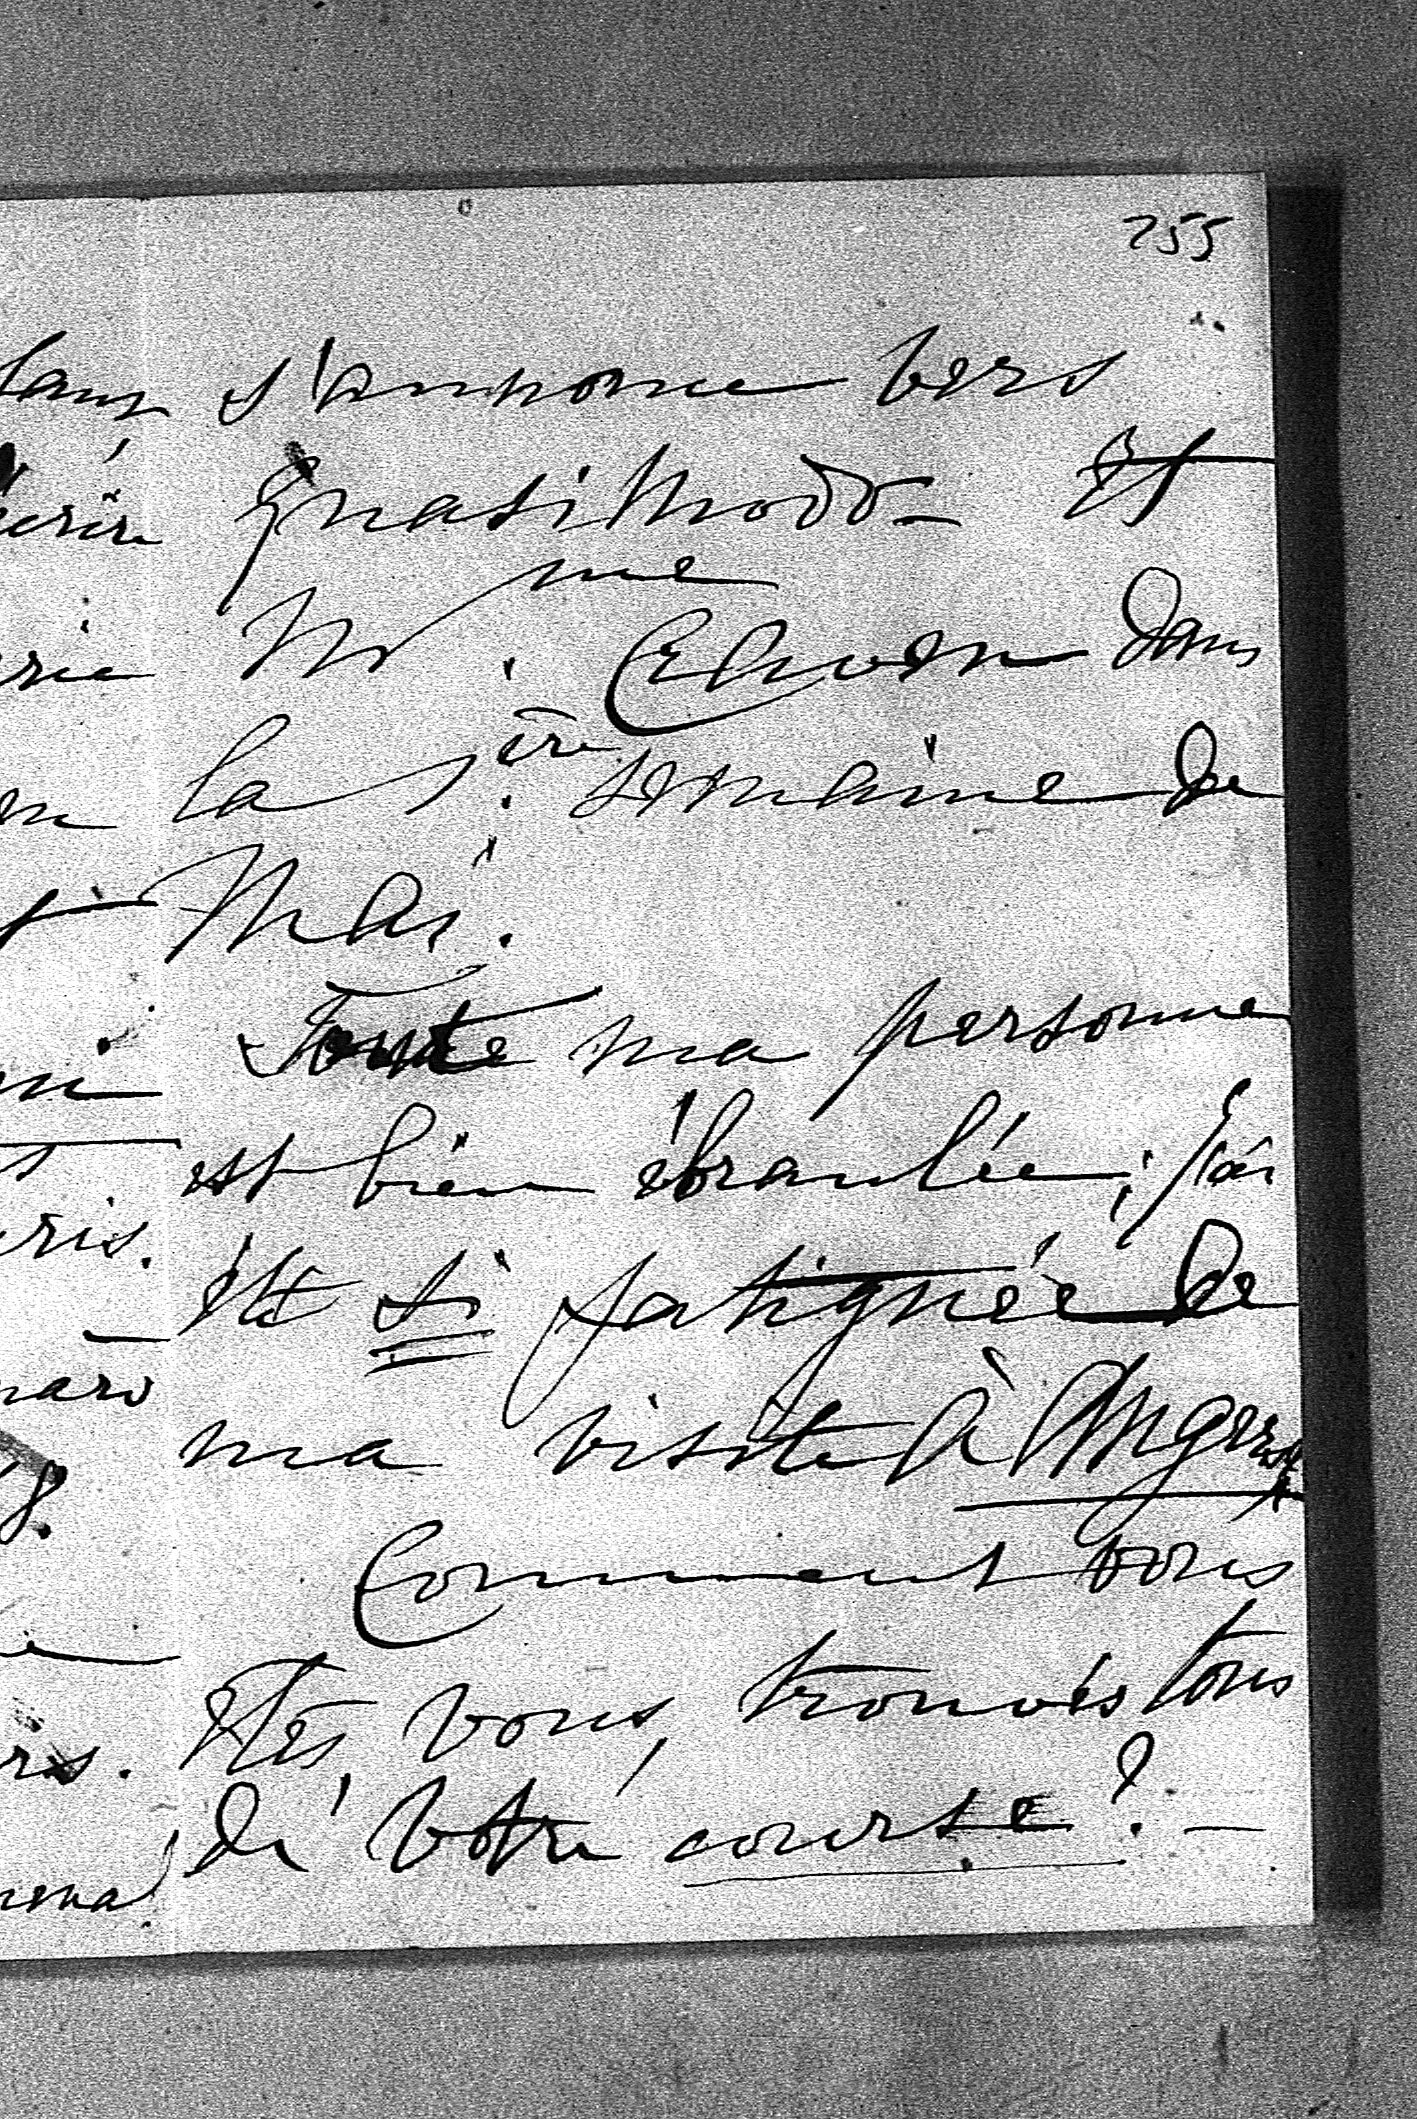 255
s'annonce vers
Quasimodo _ Et
Mme. dans
la 1ère semaine de
Mai.
Toute ma personne
est bien ébranlée; j'ai
été si fatiguée de
ma visite à Angers
Comment vous
êtes vous trouvés tous
de votre course? _